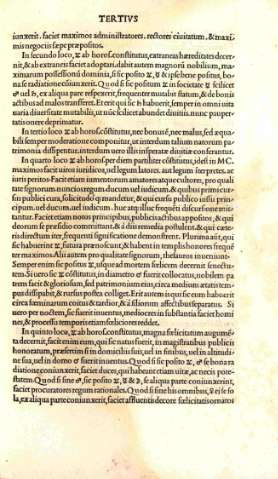 TERTIVS
iunxerit. faciet maximos administratores. rectores ciuitatum. & maxi
mis negociis sepe præpositos.
In secundo loco, ♃ ab horos. constitutus, extraneas hæreditates decer-
nit, & ab extraneis faciet adoptari. dabit autem magnorū nobilium, ma
ximarum possessionū dominia, si sic posito ♃, ☿ & ipse bene positus, bo
na se radiatione coniunxerit. Quod si sic positum ♃ in societate ☿ scilicet
uel ♄, ex aliqua parte respexerit, frequenter mutabit statum, & de bonis
actibus ad malos transferet. Et erit qui sic
uaria diuersitate mutabilis, ut núc scilicet abundet diuitiis. nunc pauper-
tatis onere deprimatur.
In tertio loco ♃ ab horos. cōstitutus, nec bonus ē, nec malus, sed æqua-
bili semper moderatione componitur, ut interdum talium naorum pa-
trimonia dispensent. interdum uero illis insperatæ diuitiæ conferantur.
In quarto loco ♃ ab horos. per diem partiliter cōstitutus, idest in MC.
maximos faciet uiros iuridicos, uel legum latores. aut legum iterpretes, ac
iuris peritos. Faciet etiam iumentorum amatores atque cultores, pro quali
tate signorum. nuncios regum ducum uel iudicum. & quibus prime cur-
sus publici cura, sollicitudoq; mandetur, & qui cursu publico iussu prin-
cipum. uel ducum. uel iudicum. huc atq; illuc frequēti discursione mit-
tantur. Faciet etiam notos principibus, publicis actibus appositos, & qui
deorum se præsidio committant. & a diis remedia postulent. & qui cate-
ris
se habuerint ♃, futura prænoscunt, & habent in templis honores frequē
ter maximos. Aliis autem pro qualitate signorum, thesauros inueniunt.
Semper enim sic positus ♃, usque ad mortem felicem decernit senectu-
tem. Si uero sic ♃ cōstitutus, in diametro ♂ fuerit collocatus, nobilem pa
trem faciet & gloriosum, sed patrimonium eius, circa mediam ætatis tem-
pus dissipabit, & rursus postea colliget. Erit autem in qui sic eum habuerit
circa feminarum coitus & tardior, & ab illarum affectibus separatus. Si
uero per noctem, sic fuerit inuentus, mediocres in substantia faciet homi
nes, & processu temporis etiam felicitatem reddet.
In quinto loco, ♃ ab horos. cōstitutus, magna fœlicitatum augumē-
ta decernit, facit enim eum, qui sic natus fuerit, in magistratibus publicis
honoratum, præsertim si in domiciliis suis, uel in finibus, uel in altitudi-
ne sua, uel in domo ♂ fuerit inuentus. Quod si sic posito ♃, ♂ se bona ra
diatione coniunxerit, faciet duces, qui habeant etiam uitæ, ac necis pote-
statem. Quod si sine ♂, sic posito ♃, ☿ & ☽, se aliqua parte coniunxerint,
faciet procuratores regum rationales. Quod si sine his omnibus, ☿ ei se so
la, ex aliqua parte coniunxerit, faciet affluentis decore fœlicitatis ornatos